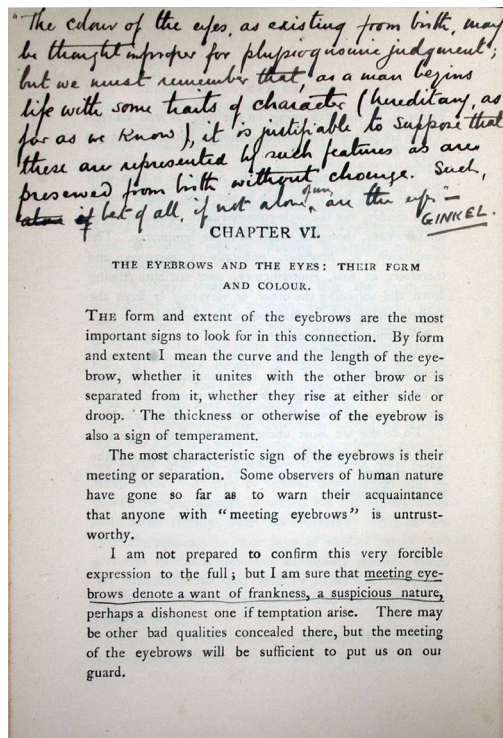 "The colour of the eyes, as existing from birth, may
be thought improper for physiognomic judgment;
but we must remember that, as a man begins
life with some traits of character (hereditary, as
far as we know), it is justifiable to suppose that
these are represented by such features as are
preserved from birth without change. Such,
if best of all, if not alone, are the eyes"—
GINKEL.
CHAPTER VI.
THE EYEBROWS AND THE EYES: THEIR FORM
AND COLOUR.
THE form and extent of the eyebrows are the most
important signs to look for in this connection. By form
and extent I mean the curve and the length of the eye-
brow, whether it unites with the other brow or is
separated from it, whether they rise at either side or
droop. The thickness or otherwise of the eyebrow is
also a sign of temperament.
The most characteristic sign of the eyebrows is their
meeting or separation. Some observers of human nature
have gone so far as to warn their acquaintance
that anyone with "meeting eyebrows" is untrust-
worthy.
I am not prepared to confirm this very forcible
expression to the full; but I am sure that meeting eye-
brows denote a want of frankness, a suspicious nature,
perhaps a dishonest one if temptation arise. There may
be other bad qualities concealed there, but the meeting
of the eyebrows will be sufficient to put us on our
guard.